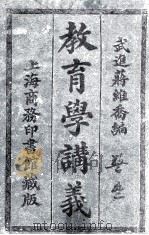 武進蔣維喬編
教育學講義
上海商務印書館藏版